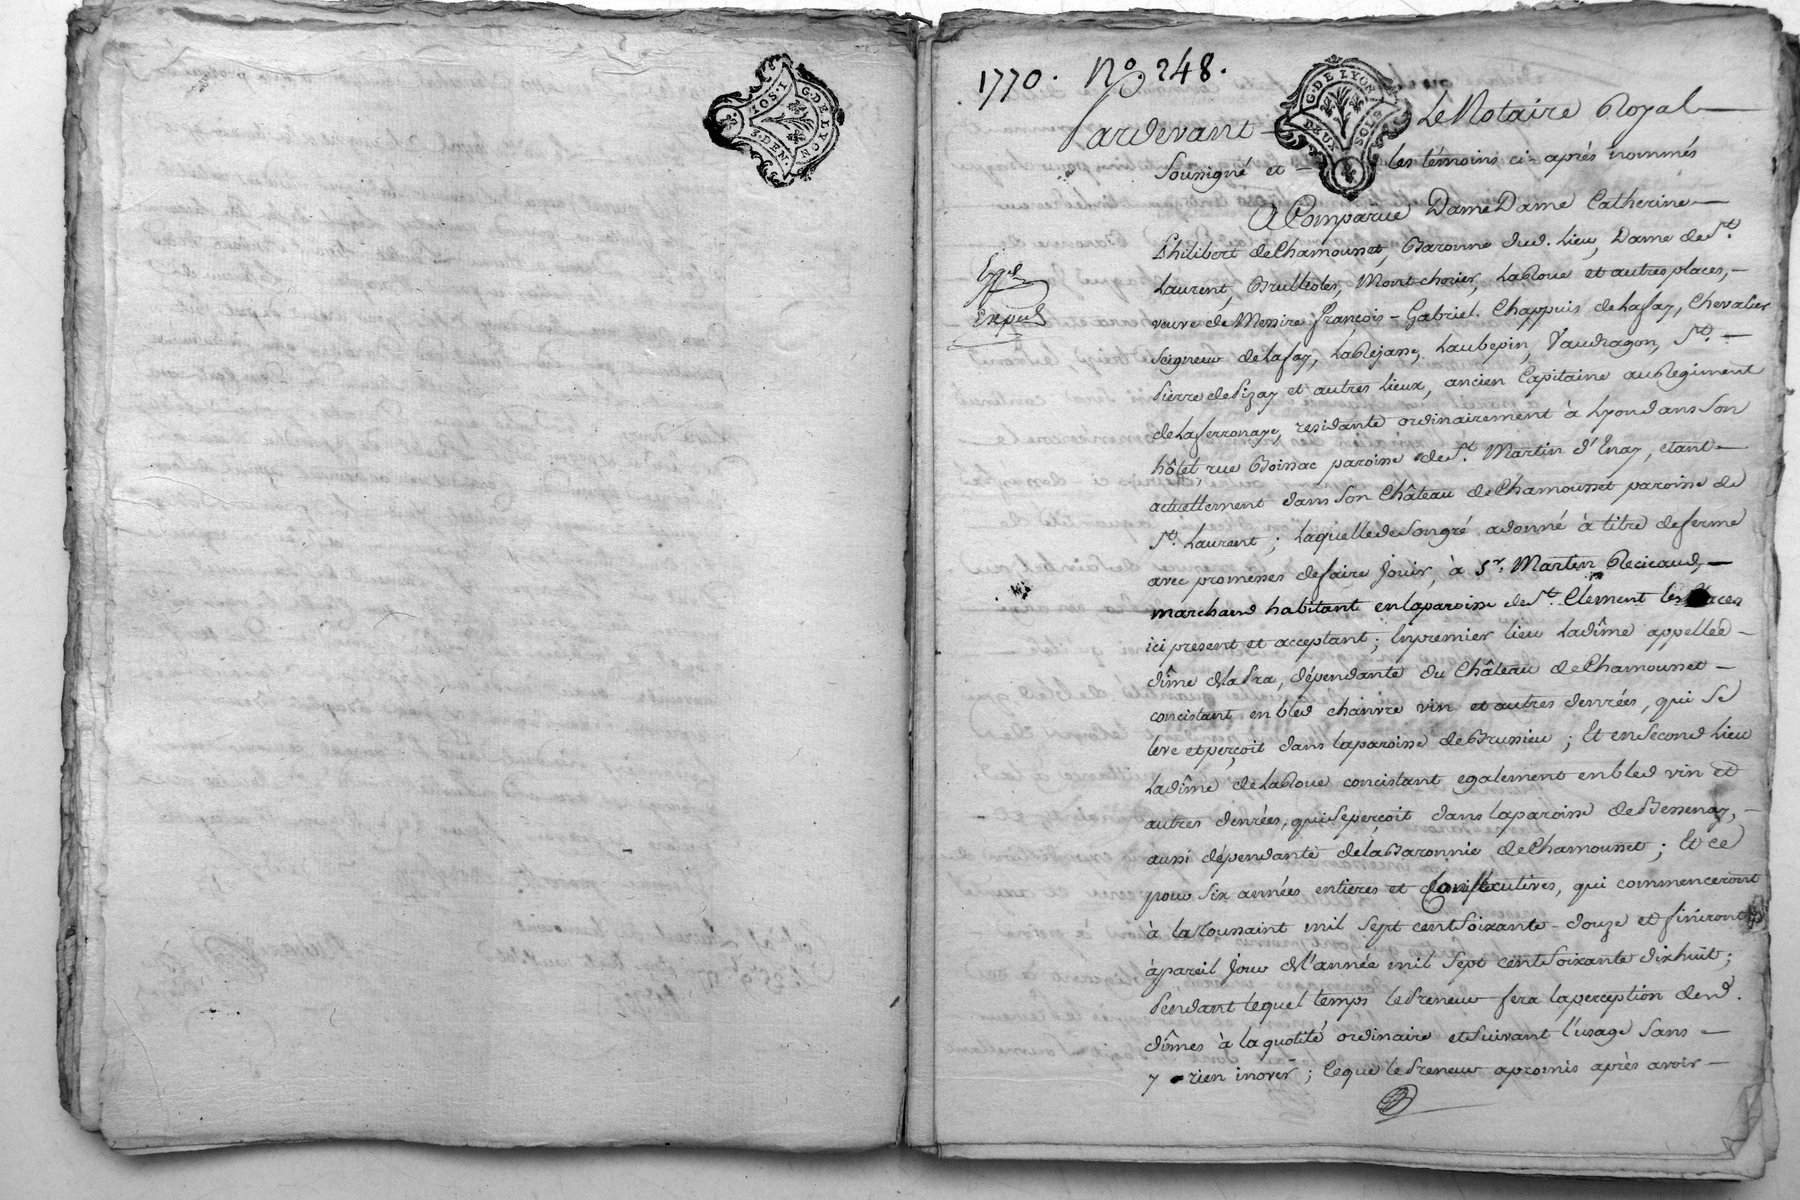 10S. 1
3. DEN.
G. DE LYON
1770. No. 248.
G. DE LYON
DEUX SOLS
Pardevant Le Notaire Royal
Soussigné et les témoins ci-après nommés
A Comparue Dame Dame Catherine
Philibert de Chamousset, Baronne dud. Lieu, Dame de St.
Laurent, Brullioles, Mont-chorier, La Roue et autres places,
veuve de Messire françois-Gabriel Chappuis de Lafay, Chevalier
Seigneur de Lafay, Laubépin, Vaudragon, St.
Pierre de Pizay et autres Lieux, ancien Capitaine au Regiment
de Laferronaye, residante ordinairement à Lyon dans son
hôtel, rue Boissac paroisse de St. Martin d'Enay, etant
actuellement dans son Château de Chamousset paroisse de
St. Laurent; Laquelle de son gré a donné à titre de ferme
avec promesses de faire Jouir, à Sr. Martin Recicaud,
marchand habitant en la paroisse de St. Clement les Places
ici present et acceptant; En premier lieu La dîme appellée
dîme de La Pra, dépendante du Château de Chamousset
concistant en bled chanvre vin et autres denrées, qui se
leve et perçoit dans la paroisse de Brussieu; Et en Second Lieu
La dîme de La Roue concistant egalement en bled vin et
autres denrées, qui se perçoit dans la paroisse de Bessenay,
aussi dépendante de la Baronnie de Chamousset; Et ce
pour six années entieres et Consécutives, qui commenceront
à la toussaint mil Sept cent Soixante-douze et finiront
à pareil Jour de l'année mil Sept cent Soixante dix huit;
Pendant lequel temps le Preneur fera la perception desd.
dîmes à la quotité ordinaire et suivant l'usage sans
y rien inover; Ce que le Preneur a promis après avoir